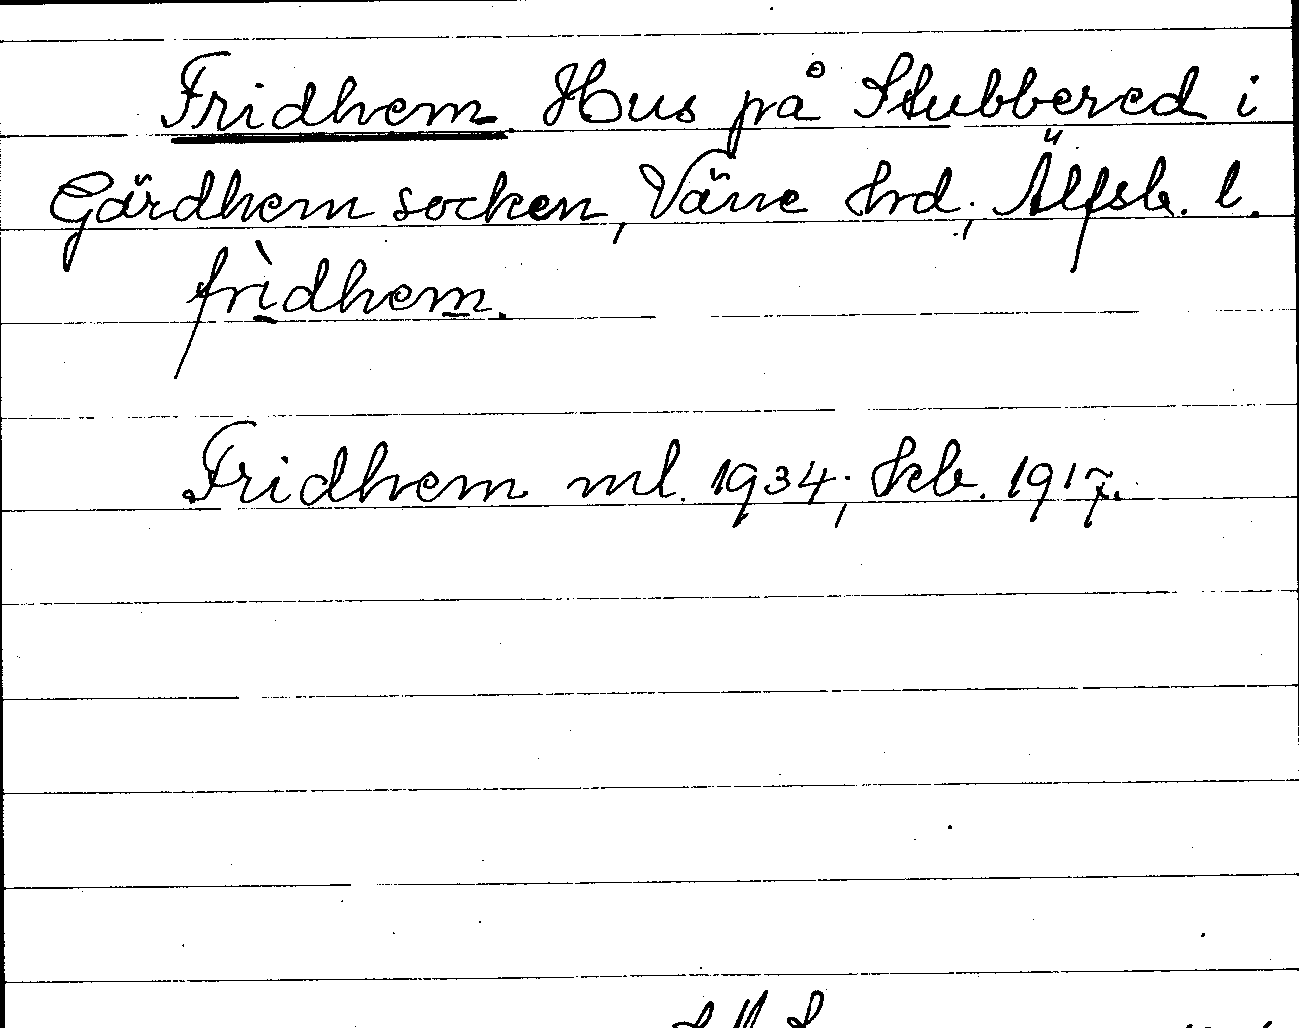 Fridhem. Hus på Stubbered i
Gärdhem socken, Väne hrd; Älfsb. l.
frìdhem.
Fridhem ml. 1934; Skb. 1917.